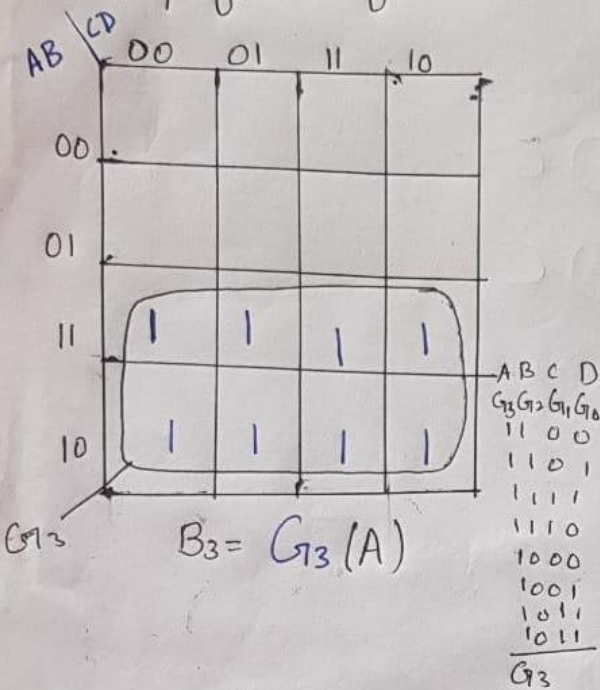 AB \ CD 00 01 11 10
00
01
11 1 1 1 1
10 1 1 1 1
G3
B3 = G3 (A)
A B C D
G3 G2 G1 G0
1 1 0 0
1 1 0 1
1 1 1 1
1 1 1 0
1 0 0 0
1 0 0 1
1 0 1 1
1 0 1 1
G3